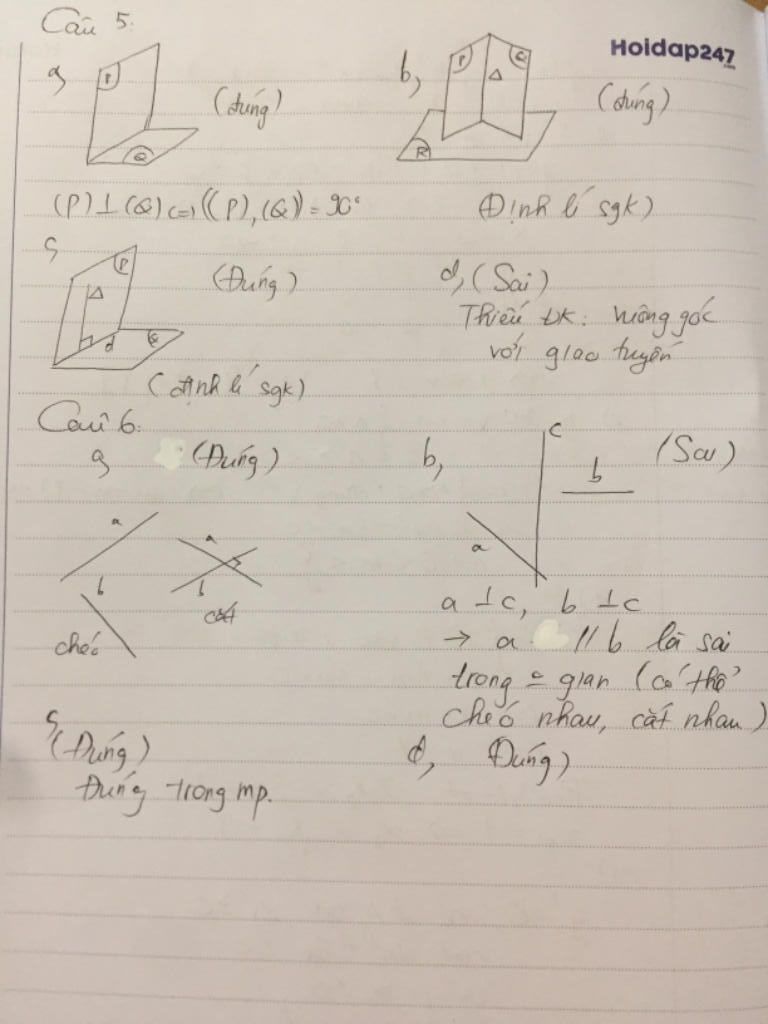 Câu 5:
Hoidap247
.com
a,
P
Q
(đúng)
b,
P
Q
Δ
R
(đúng)
(P)⊥(Q) <=> ((P),(Q)) = 90°
(Định lí sgk)
c,
P
Δ
d
Q
(Đúng)
(định lí sgk)
d, (Sai)
Thiếu ĐK: vuông góc
với giao tuyến
Câu 6:
a, (Đúng)
a
b
chéo
a
b
cắt
b,
c
b
a
(Sai)
a ⊥c, b ⊥c
→ a // b là sai
trong = gian (có thể
chéo nhau, cắt nhau)
c,
(Đúng)
Đúng trong mp.
d, Đúng)